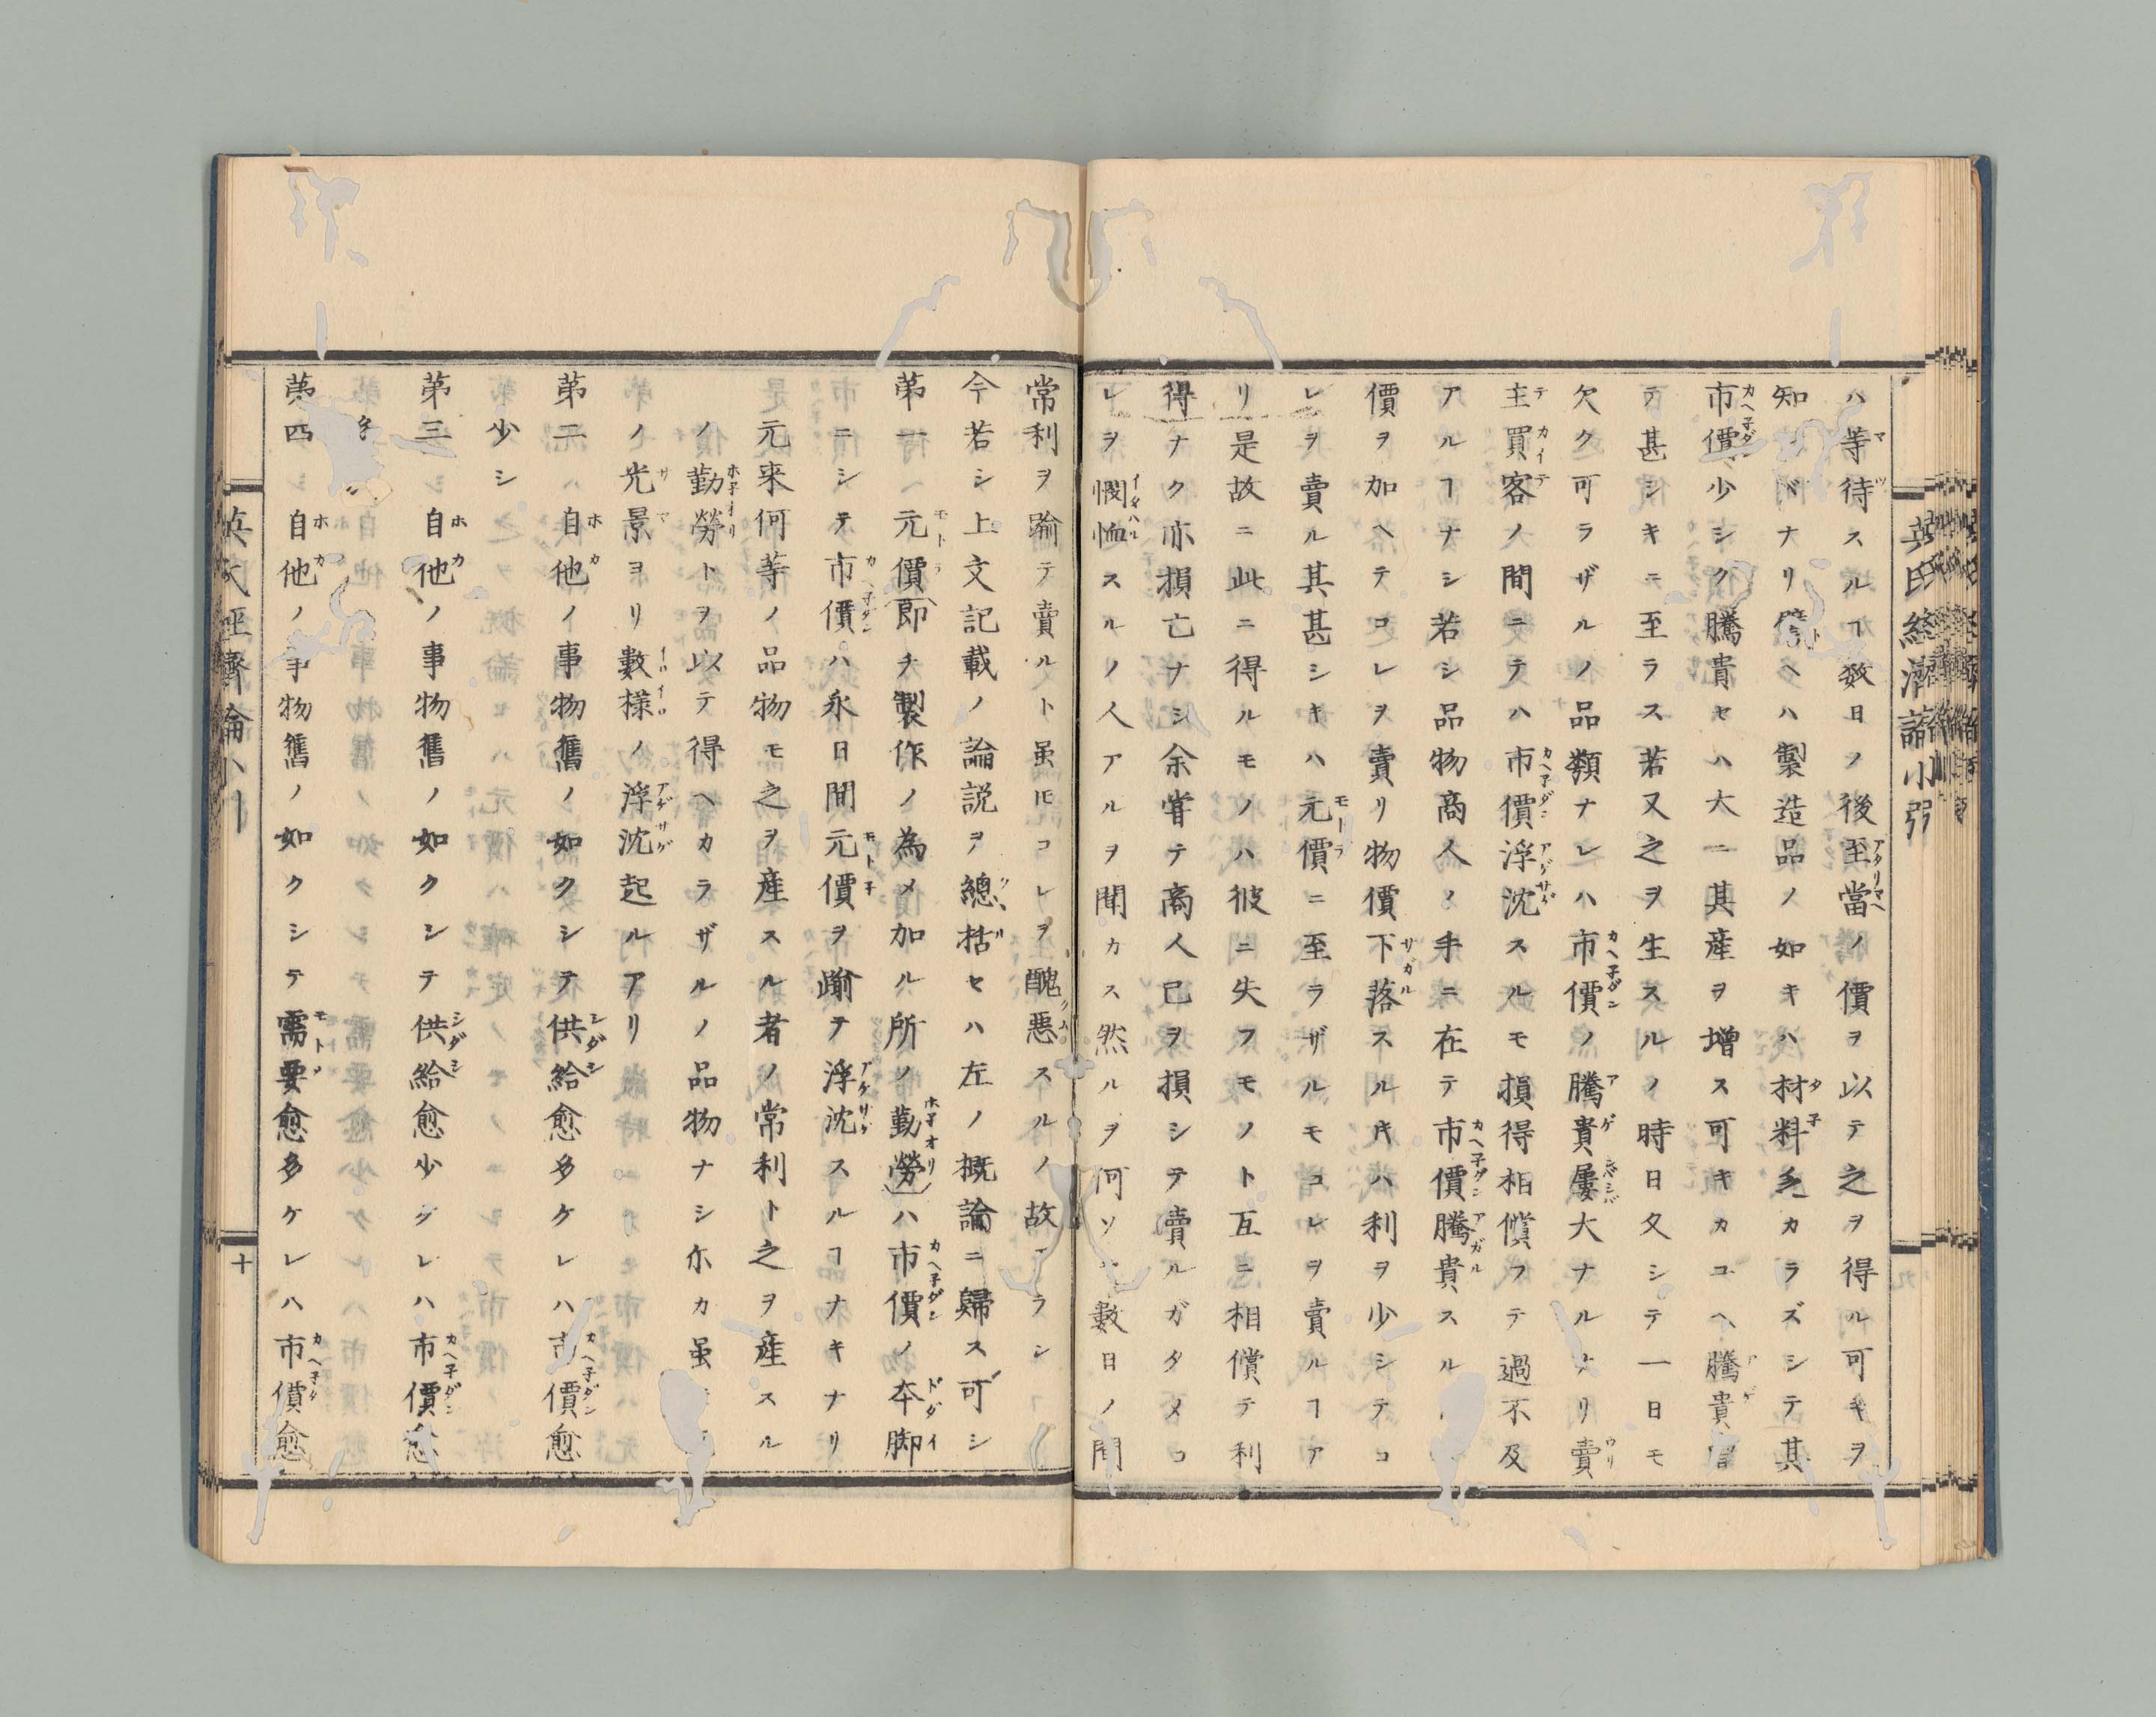 ハ等待スルヿ数日ノ後至當ノ價ヲ以テ之ヲ得ル可キヲ
知ベナリ譬ヘハ製造品ノ如キハ材料乏カラズシテ其
市價少シク騰貴セハ大ニ其産ヲ増ス可キカユヘ騰貴
テ甚シキニ至ラス若又之ヲ生スルノ時日久シテ一日モ
欠ク可ラザルノ品類ナレハ市價ノ騰貴屢大ナルナリ賣
主買客ノ間ニテハ市價浮沈スルモ損得相償フテ過不及
アルヿナシ若シ品物商人ノ手ニ在テ市價騰貴スル
價ヲ加ヘテコレヲ賣リ物價下落スルキハ利ヲ少シテコ
レヲ賣ル其甚シキハ元價ニ至ラザルモコレヲ賣ルヿア
リ是故ニ此ニ得ルモノハ彼ニ失フモノト互ニ相償テ利
得ナク亦損亡ナシ余甞テ商人己ヲ損シテ賣ルガタメコ
レヲ憫恤スルノ人アルヲ聞カス然ルヲ何ソ數日ノ間
常利ヲ踰テ賣ルト虽𪜈コレヲ醜惡スルノ故アランヿ
今若シ上文記載ノ論説ヲ總括セハ左ノ概論ニ歸ス可シ
第一元價即チ製作ノ為メ加ル所ノ勤勞ハ市價ノ本脚
ニシテ市價ハ永日間元價ヲ踰テ浮沈スルヿナキナリ
元来何等ノ品物モ之ヲ産スル者ノ常利ト之ヲ産スル
ノ勤勞トヲ以テ得ヘカラザルノ品物ナシ尓カ虽
ノ光景ヨリ數様ノ浮沈起ルアリ
第二自他ノ事物舊ノ如クシテ供給愈多ケレハ市價愈
少シ
第三自他ノ事物舊ノ如クシテ供給愈少ケレハ市價愈
多
第四自他ノ事物舊ノ如クシテ需要愈多ケレハ市價愈
十